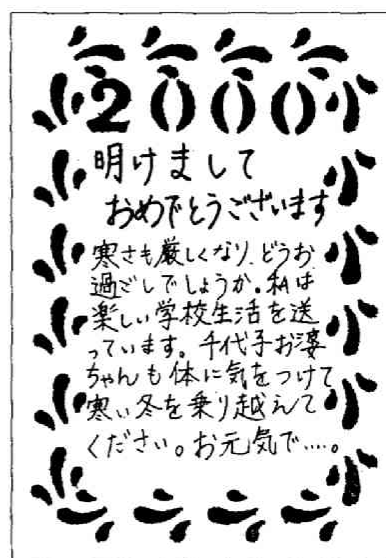 2000
明けまして
おめでとうございます
寒さも厳しくなり、どうお
過ごしでしょうか。私は
楽しい学校生活を送
っています。千代子お婆
ちゃんも体に気をつけて
寒い冬を乗り越えて
ください。お元気で…。